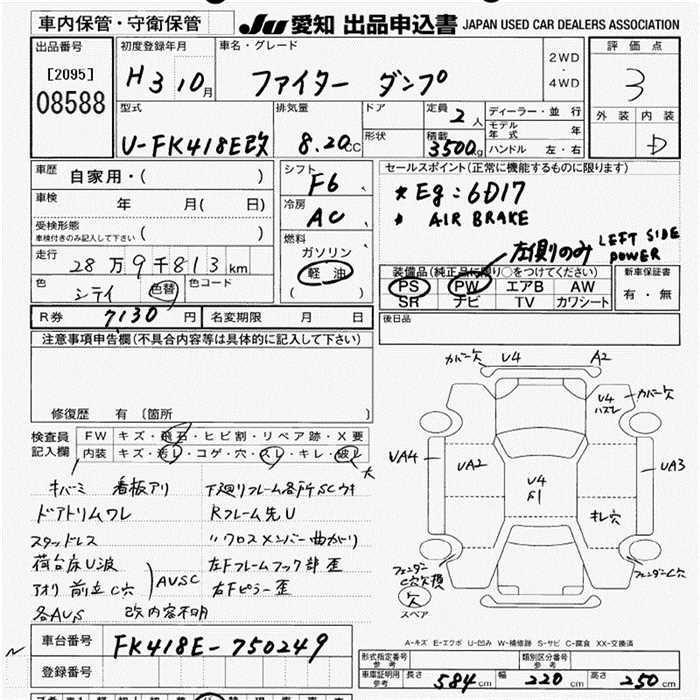 車内保管・守衛保管
JU 愛知 出品申込書 JAPAN USED CAR DEALERS ASSOCIATION
出品番号
[2095]
08588
初度登録年月
H 3 10月
車名・グレード
ファイター ダンプ
2WD
・
4WD
評価点
3
外装 内装
D
型式
U-FK418E改
排気量
8.20CC
ドア
形状
定員
2人
積載
3500kg
ディーラー・並行
モデル年式 年
ハンドル 左・右
車歴
自家用・( )
車検
年 月( 日)
受検形態
車検付きのみ記入して下さい ( )
走行
28万9千813km
色
シティ
色替
色コード
シフト
F6
冷房
AC
燃料
ガソリン
軽油
( )
セールスポイント(正常に機能するものに限ります)
* Eg:6D17
AIR BRAKE
左側のみ LEFT SIDE POWER
装備品(純正品に限り○をつけてください)
PS PW エアB AW
SR ナビ TV カワシート
新車保証書
有・無
R券 7130円
名変期限 月 日
後日品
注意事項申告欄(不具合内容等は具体的に記入して下さい)
修復歴 有 (箇所 )
検査員記入欄
FW キズ・飛石・ヒビ割・リペア跡・X要
内装 キズ・汚レ・コゲ・穴・スレ・キレ・破レ
大
キバミ 看板アリ
ドアトリムワレ
スタッドレス
荷台床U波
アオリ 前立C穴
AUSC
各AUS 改内容不明
下廻りフレーム各所SCサキ
Rフレーム先U
〃クロスメンバー曲がり
左Fフレームフック部歪
右Fピラー歪
カバー欠 U4 A2
U4
ハズレ
カバー欠
UA4
UA2
U4
UA3
キレ穴
フェンダーC欠欠損
フェンダーC穴
欠
スペア
A-キズ E-エクボ U-凹み W-補修跡 S-サビ C-腐食 XX-交換済
車台番号
FK418E-750249
登録番号
形式指定番号
参考
類別区分番号
参考
車庫証明用
参考
長さ 584cm
幅 220cm
高さ 250cm